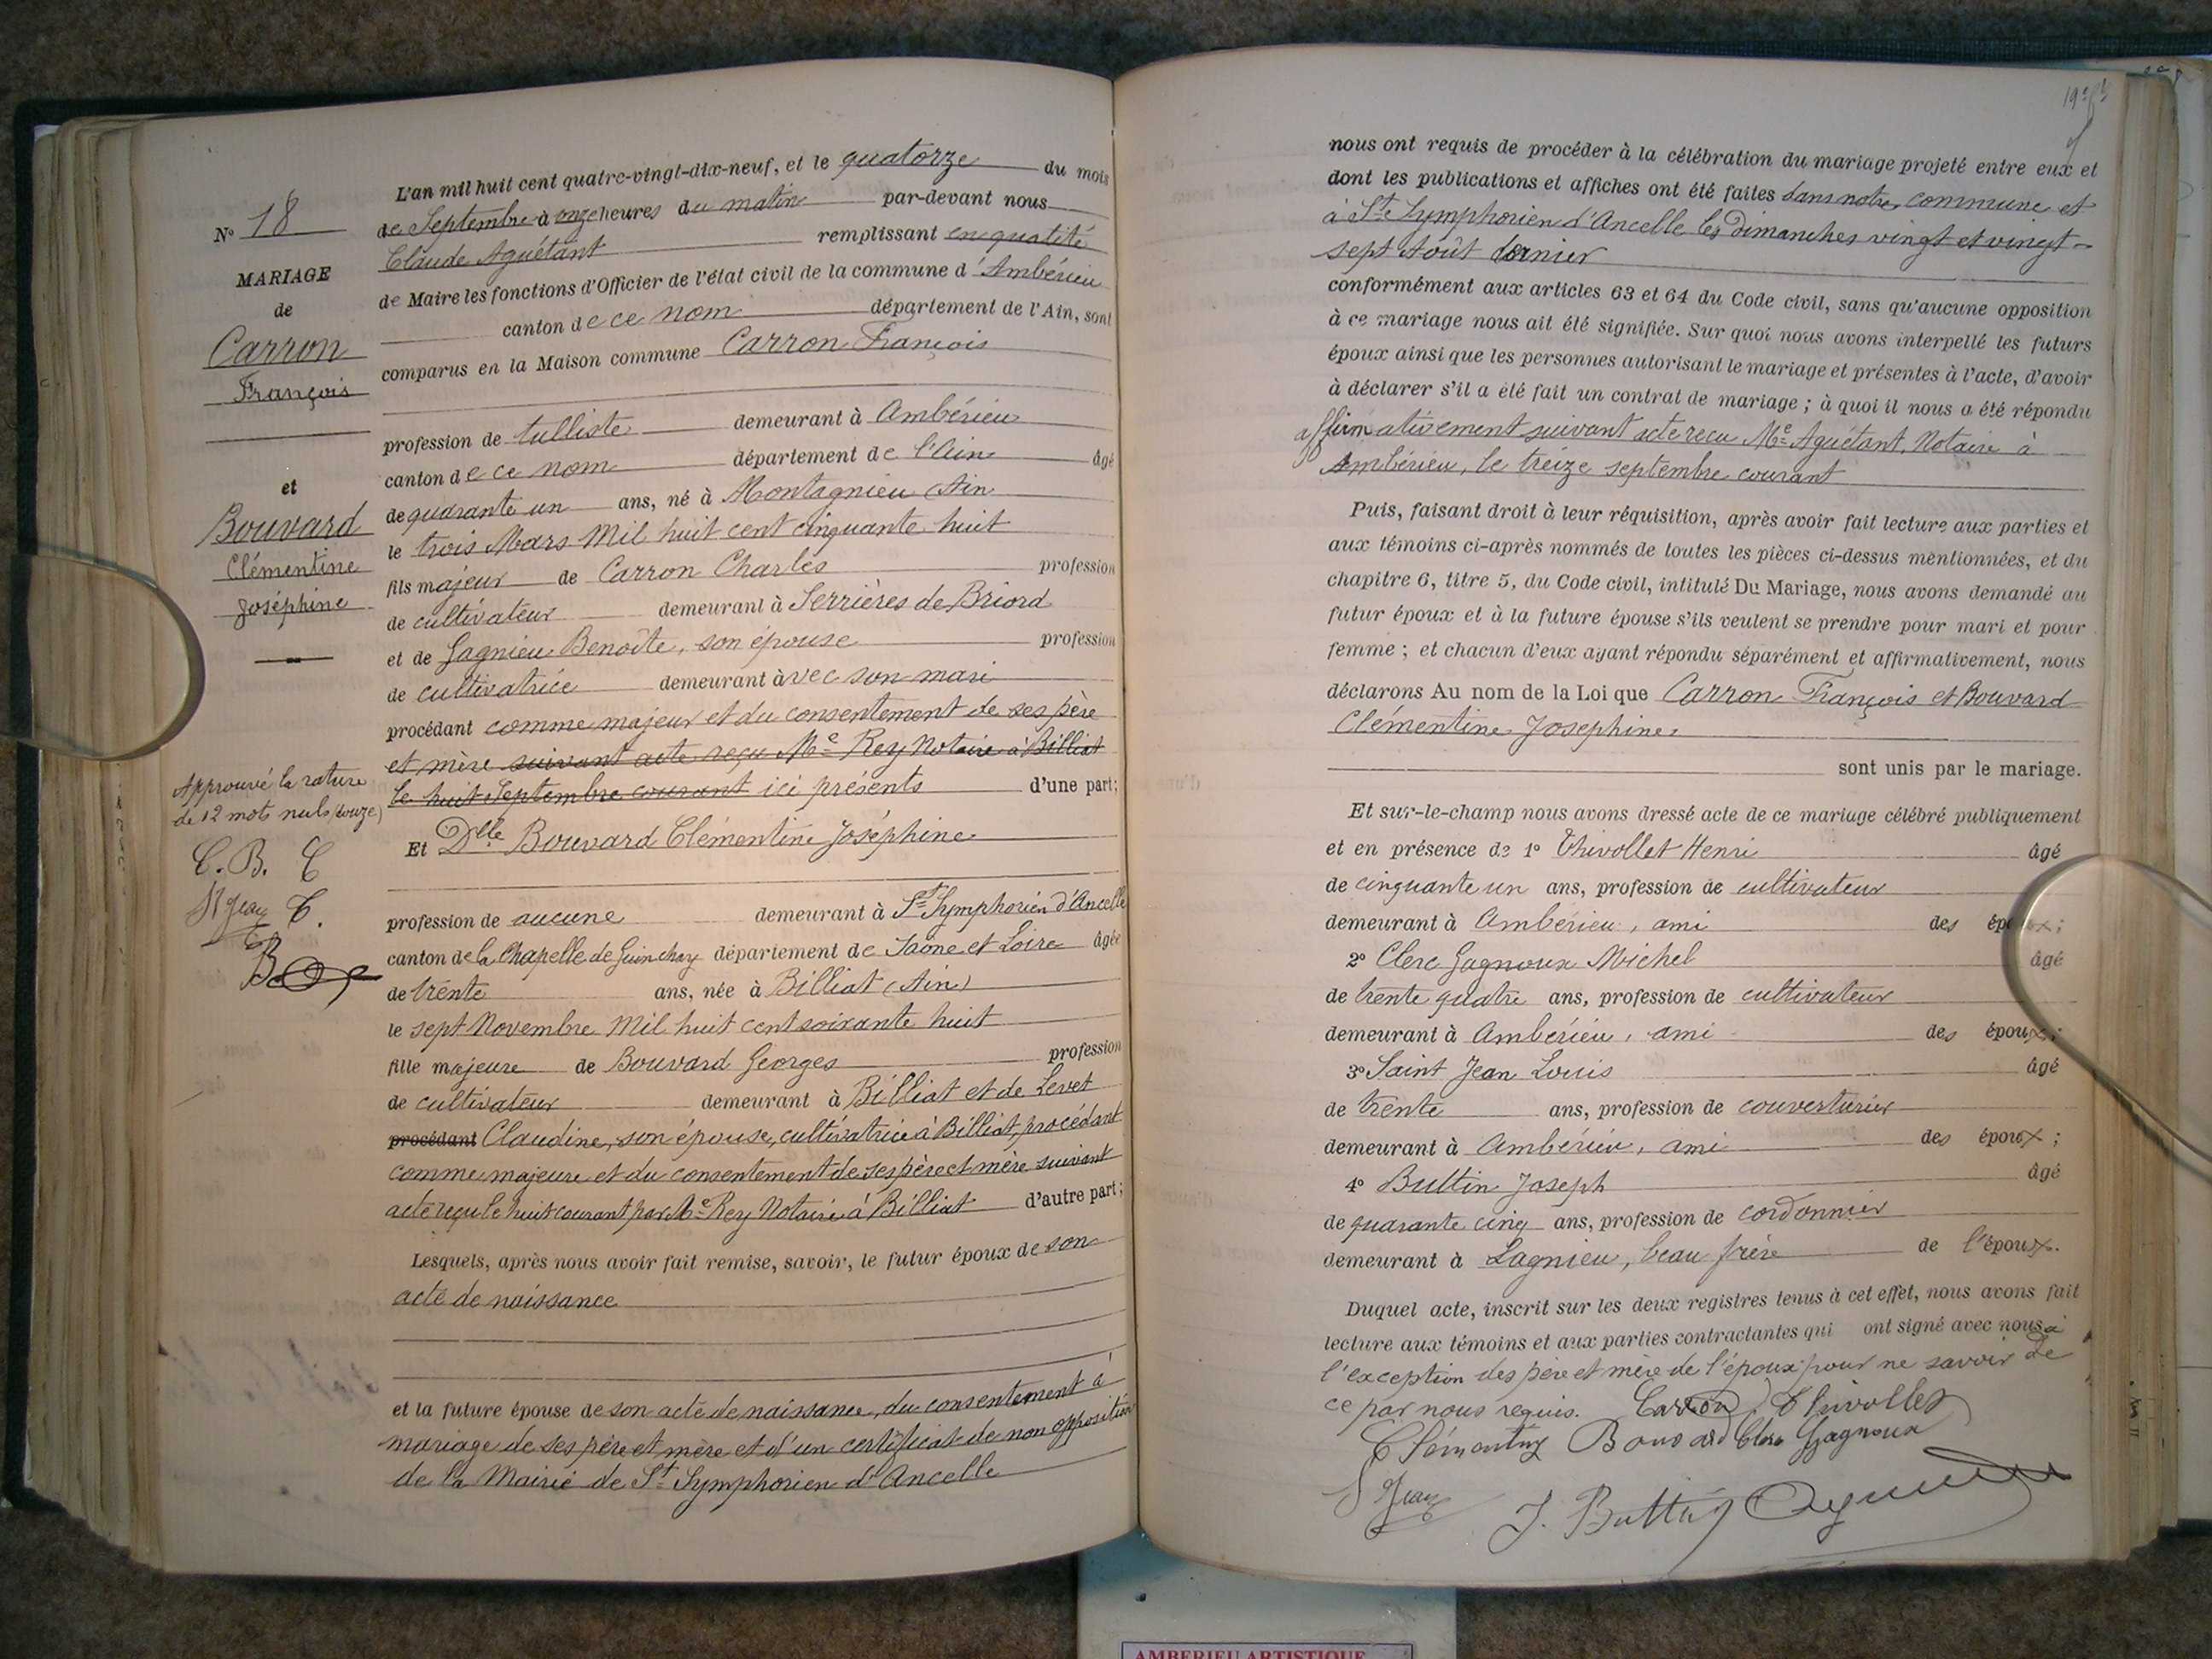 N° 18
MARIAGE
de
Carron
François
et
Bouvard
Clémentine
Joséphine
Approuvé la rature
de 12 mots nuls (douze)
C. B. C
St Jean T.
B
L'an mil huit cent quatre-vingt-dix-neuf, et le quatorze du mois
de Septembre à onze heures du matin par-devant nous
Claude Aguétant remplissant en qualité
de Maire les fonctions d'Officier de l'état civil de la commune d'Ambérieu
canton de ce nom département de l'Ain, sont
comparus en la Maison commune Carron François
profession de tulliste demeurant à Ambérieu
canton de ce nom département de l'Ain âgé
de quarante un ans, né à Montagnieu (Ain
le trois Mars Mil huit cent cinquante huit
fils majeur de Carron Charles profession
de cultivateur demeurant à Serrières de Briord
et de Gagnieu Benoîte, son épouse profession
de cultivatrice demeurant avec son mari
procédant comme majeur et du consentement de ses père
et mère suivant acte reçu Me Rey Notaire à Billiat
le huit Septembre courant ici présents d'une part;
Et Dlle Bouvard Clémentine Joséphine
profession de aucune demeurant à St Symphorien d'Ancelle
canton de la Chapelle de Guinchay département de Saône et Loire âgée
de trente ans, née à Billiat (Ain)
le sept Novembre Mil huit cent soixante huit
fille majeure de Bouvard Georges profession
de cultivateur demeurant à Billiat et de Levet
procédant Claudine, son épouse, cultivatrice à Billiat, procédant
comme majeure et du consentement de ses père et mère suivant
acte reçu le huit courant par Me Rey Notaire à Billiat d'autre part;
Lesquels, après nous avoir fait remise, savoir, le futur époux de son
acte de naissance
et la future épouse de son acte de naissance, du consentement à
mariage de ses père et mère et d'un certificat de non opposition
de la Mairie de St Symphorien d'Ancelle
nous ont requis de procéder à la célébration du mariage projeté entre eux et
dont les publications et affiches ont été faites dans notre commune et
à St Symphorien d'Ancelle les Dimanches vingt et vingt-
sept Août dernier
conformément aux articles 63 et 64 du Code civil, sans qu'aucune opposition
à ce mariage nous ait été signifiée. Sur quoi nous avons interpellé les futurs
époux ainsi que les personnes autorisant le mariage et présentes à l'acte, d'avoir
à déclarer s'il a été fait un contrat de mariage; à quoi il nous a été répondu
affirmativement suivant acte reçu Me Aguétant, Notaire à
Ambérieu, le treize septembre courant
Puis, faisant droit à leur réquisition, après avoir fait lecture aux parties et
aux témoins ci-après nommés de toutes les pièces ci-dessus mentionnées, et du
chapitre 6, titre 5, du Code civil, intitulé Du Mariage, nous avons demandé au
futur époux et à la future épouse s'ils veulent se prendre pour mari et pour
femme; et chacun d'eux ayant répondu séparément et affirmativement, nous
déclarons Au nom de la Loi que Carron François et Bouvard
Clémentine Josephine
sont unis par le mariage.
Et sur-le-champ nous avons dressé acte de ce mariage célébré publiquement
et en présence de 1° Thivollet Henri âgé
de cinquante un ans, profession de cultivateur
demeurant à Ambérieu, ami des époux;
2° Clerc Gagnoux Michel âgé
de trente quatre ans, profession de cultivateur
demeurant à Ambérieu, ami des époux;
3° Saint Jean Louis âgé
de trente ans, profession de couverturier
demeurant à Ambérieu, ami des époux;
4° Buttin Joseph âgé
de quarante cinq ans, profession de cordonnier
demeurant à Lagnieu, beau frère de l'époux.
Duquel acte, inscrit sur les deux registres tenus à cet effet, nous avons fait
lecture aux témoins et aux parties contractantes qui ont signé avec nous à
l'exception des père et mère de l'époux pour ne savoir de
ce par nous requis. Carron Thivollet
Clémentine Bouvard Clerc Gagnoux
St Jean J. Buttin Aguétant
AMBERIEU ARTISTIQUE